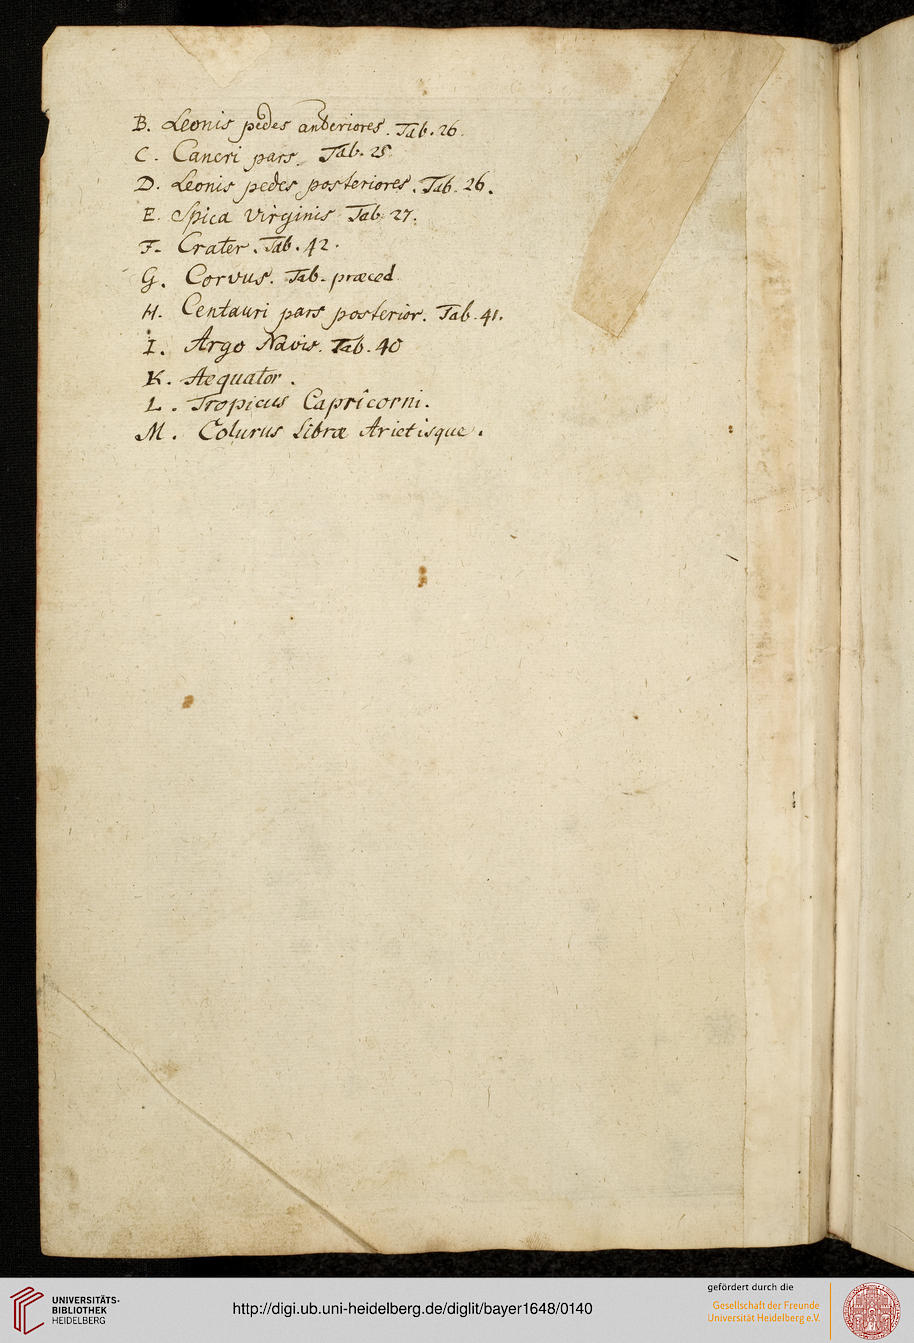 B. Leonis pedes anteriores. Tab. 26.
C. Cancri pars. Tab. 25
D. Leonis pedes posteriores. Tab. 26.
E. Spica Virginis Tab. 27.
F. Crater. Tab. 42.
G. Corvus. Tab. præced
H. Centauri pars posterior. Tab. 41.
I. Argo Navis. Tab. 40
K. Aequator.
L. Tropicus Capricorni.
M. Colurus Libræ Arietisque.
UNIVERSITÄTS-
BIBLIOTHEK
HEIDELBERG
http://digi.ub.uni-heidelberg.de/diglit/bayer1648/0140
gefördert durch die
Gesellschaft der Freunde
Universität Heidelberg e.V.